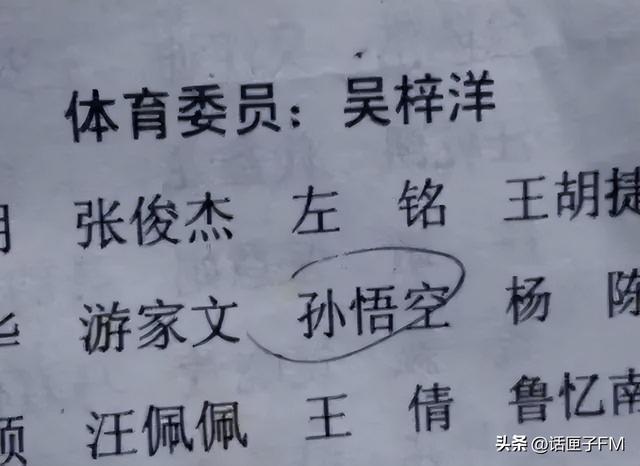 体育委员：吴梓洋
张俊杰 左铭 王胡捷
游家文 孙悟空 杨陈
汪佩佩 王倩 鲁忆南
头条 @话匣子FM